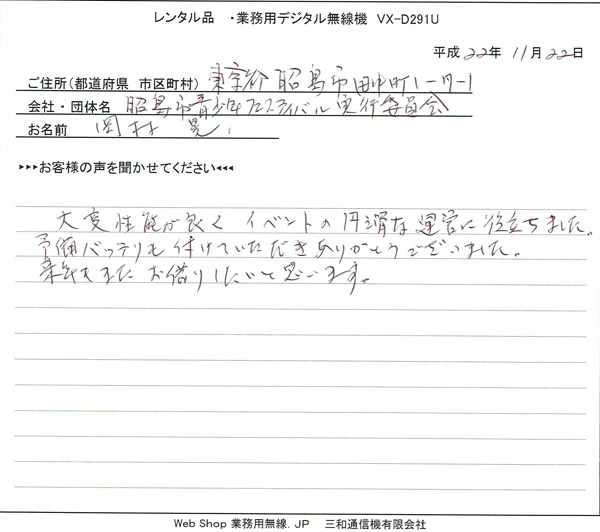 レンタル品 ・業務用デジタル無線機 VX-D291U
平成 22年 11月 22日
ご住所(都道府県 市区町村) 東京都 昭島市田中町1-17-1
会社・団体名 昭島市青少年フェスティバル実行委員会
お名前 岡村 晃
▸▸▸お客様の声を聞かせてください◂◂◂
大変性能が良く イベントの円滑な運営に役立ちました。
予備バッテリも付けていただきありがとうございました。
来年もまたお借りしたいと思います。
Web Shop 業務用無線.JP 三和通信機有限会社